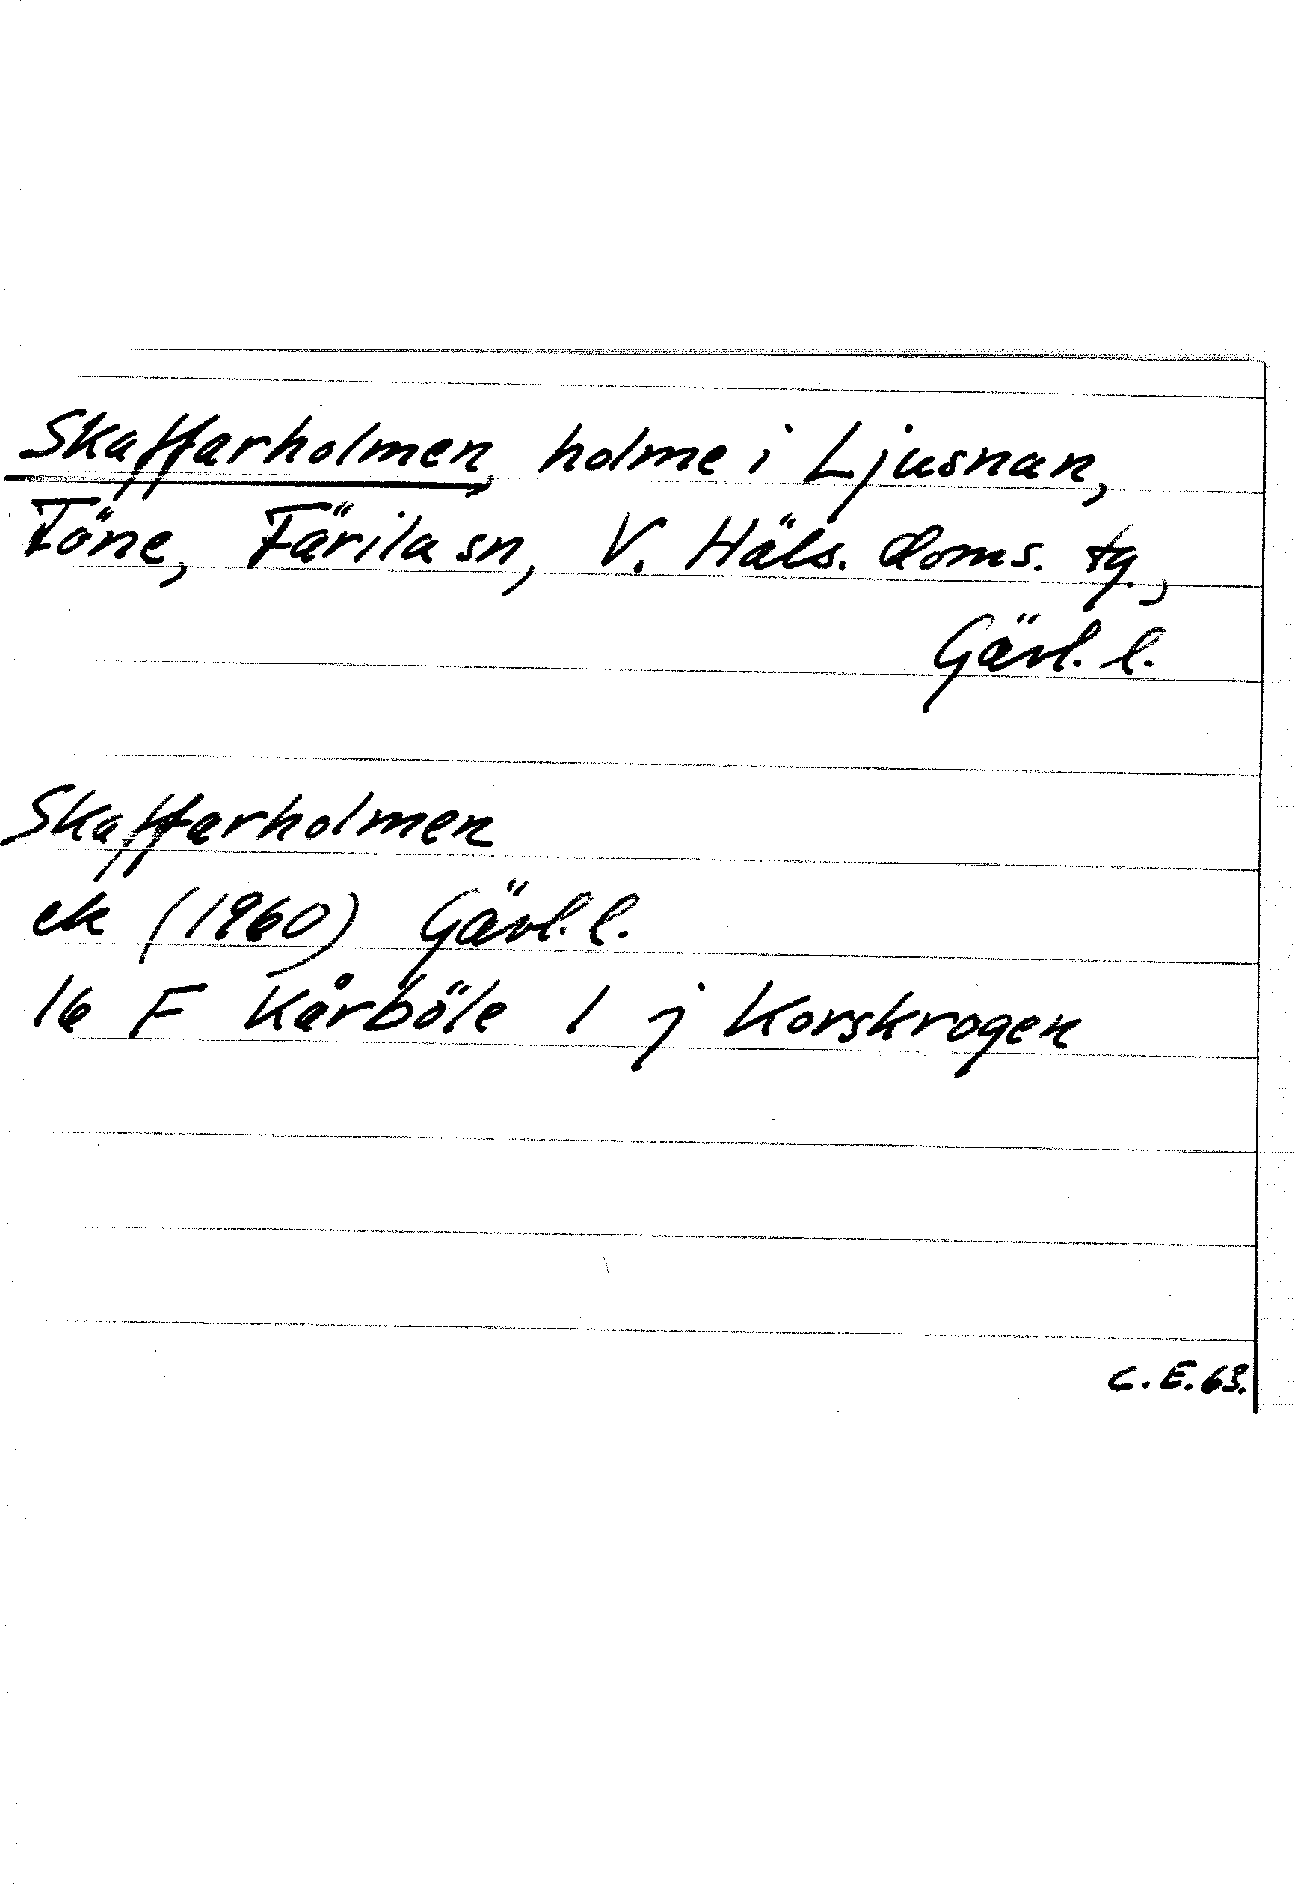 Skaffarholmen, holme i Ljusnan,
Föne, Färila sn, V. Häls. doms. tg.,
Gävl. l.
Skaffarholmen
ek (1960) Gävl. l.
16 F Kårböle 1 j Korskrogen
C. E. 63.